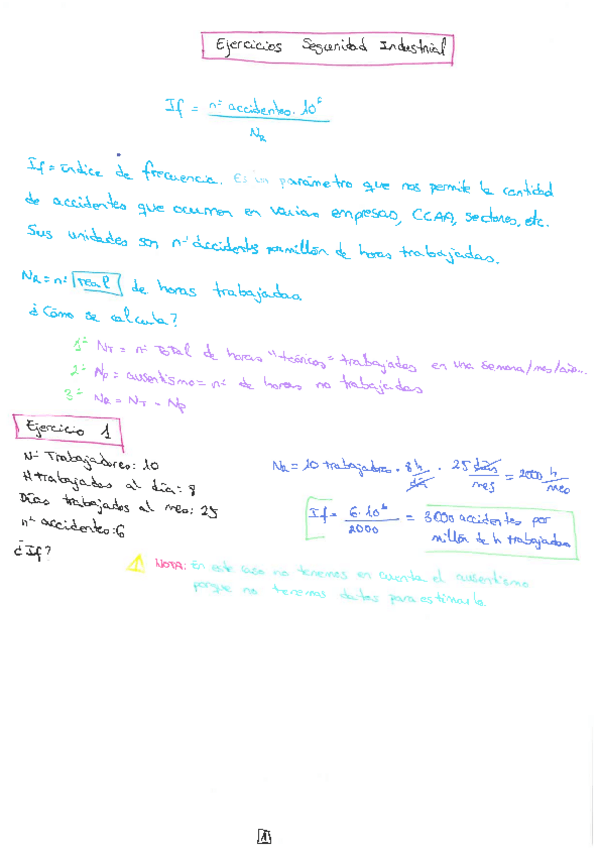 Ejercicios Seguridad Industrial
If = nº accidentes · 10⁶ / NR
If = índice de frecuencia. Es un parámetro que nos permite la cantidad
de accidentes que ocurren en varias empresas, CCAA, sectores, etc.
Sus unidades son nº accidentes por millón de horas trabajadas.
NR = nº real de horas trabajadas
¿Cómo se calcula?
1º NT = nº TOTAL de horas "teóricas" trabajadas en una semana/mes/año...
2º Np = ausentismo = nº de horas no trabajadas
3º NR = NT - Np
Ejercicio 1
Nº Trabajadores: 10
H trabajadas al día: 8
Días trabajados al mes: 25
nº accidentes: 6
¿If?
NR = 10 trabajadores · 8 h/día · 25 días/mes = 2000 h/mes
If = 6·10⁶ / 2000 = 3000 accidentes por
millón de h trabajadas
NOTA: En este caso no tenemos en cuenta el ausentismo
porque no tenemos datos para estimarlo
1